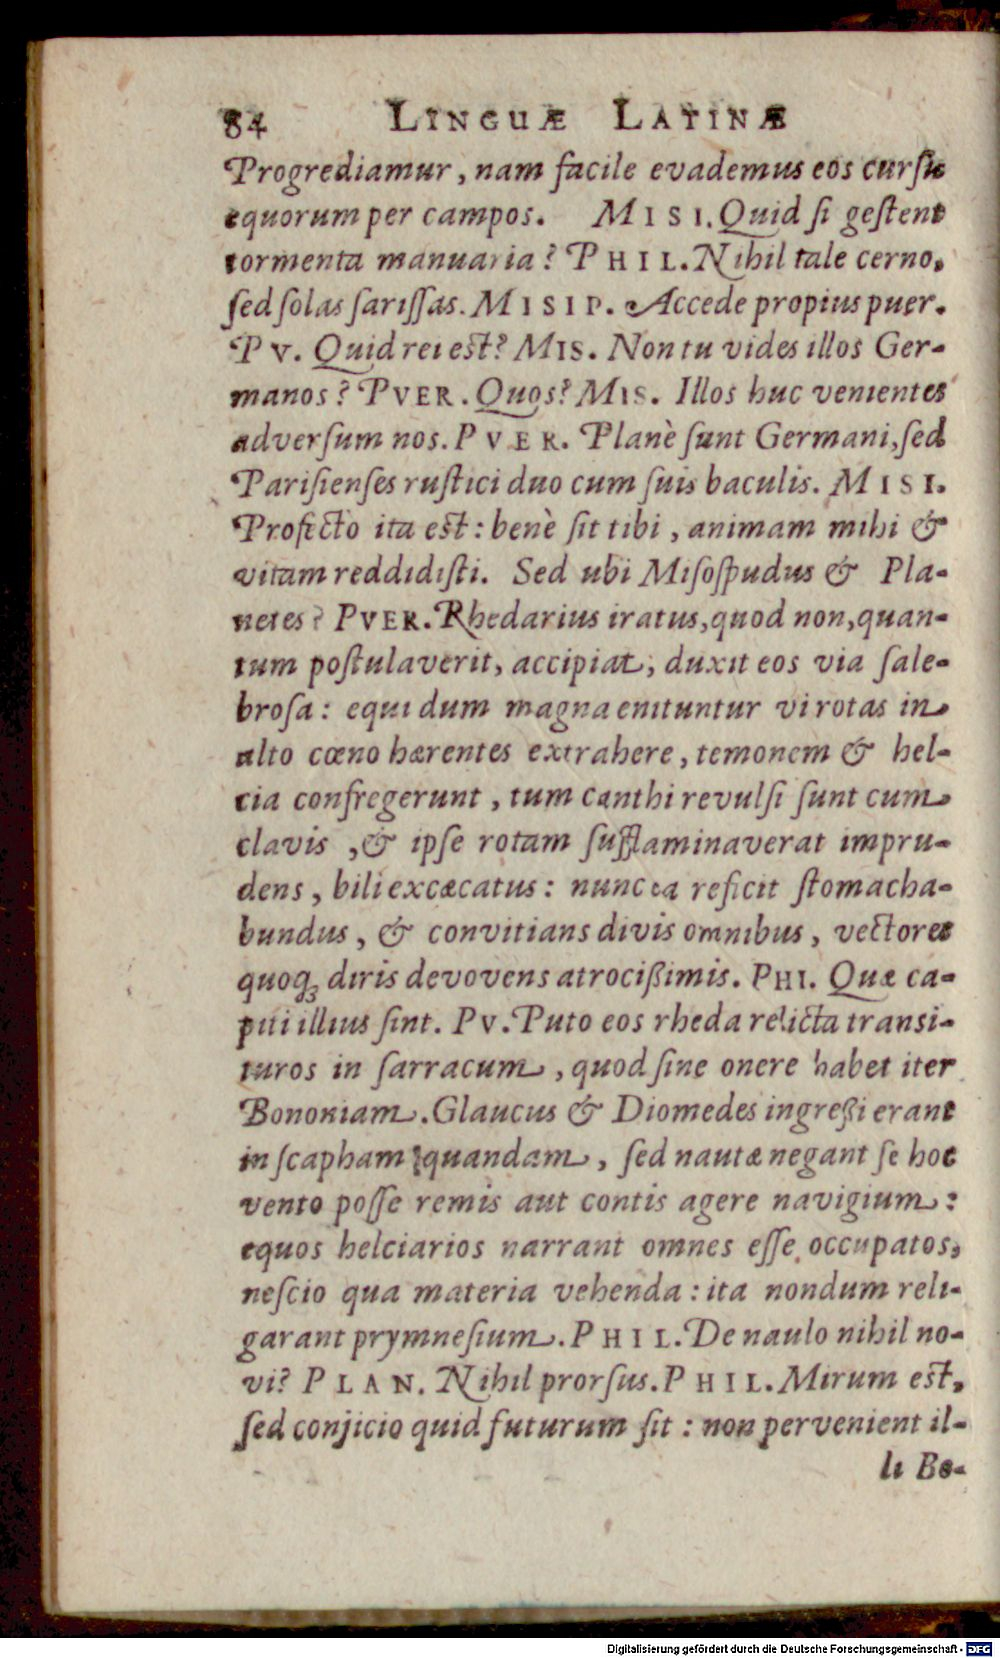 84 LINGUÆ LATINÆ
Progrediamur, nam facile evademus eos cursu
equorum per campos. MISI. Quid si gestent
tormenta manuaria? PHIL. Nihil tale cerno,
sed solas sarissas. MISIP. Accede propius puer.
PV. Quid rei est? MIS. Non tu vides illos Ger-
manos? PVER. Quos? MIS. Illos huc venientes
adversum nos. PVER. Planè sunt Germani, sed
Parisienses rustici duo cum suis baculis. MISI.
Profecto ita est: benè sit tibi, animam mihi &
vitam reddidisti. Sed ubi Misospudus & Pla-
netes? PVER. Rhedarius iratus, quod non, quan-
tum postulaverit, accipiat, duxit eos via sale-
brosa: equi dum magna enituntur vi rotas in
alto cœno hærentes extrahere, temonem & hel-
cia confregerunt, tum canthi revulsi sunt cum
clavis, & ipse rotam sufflaminaverat impru-
dens, bili excæcatus: nunc ea reficit stomacha-
bundus, & convitians divis omnibus, vectores
quoq; diris devovens atrocißimis. PHI. Quæ ca-
piti illius sint. PV. Puto eos rheda relicta transi-
turos in sarracum, quod sine onere habet iter
Bononiam. Glaucus & Diomedes ingreßi erant
in scapham quandam, sed nautæ negant se hoc
vento posse remis aut contis agere navigium:
equos helciarios narrant omnes esse occupatos,
nescio qua materia vehenda: ita nondum reli-
garant prymnesium. PHIL. De naulo nihil no-
vi? PLAN. Nihil prorsus. PHIL. Mirum est,
sed conjicio quid futurum sit: non pervenient il-
li Bo-
Digitalisierung gefördert durch die Deutsche Forschungsgemeinschaft - DFG